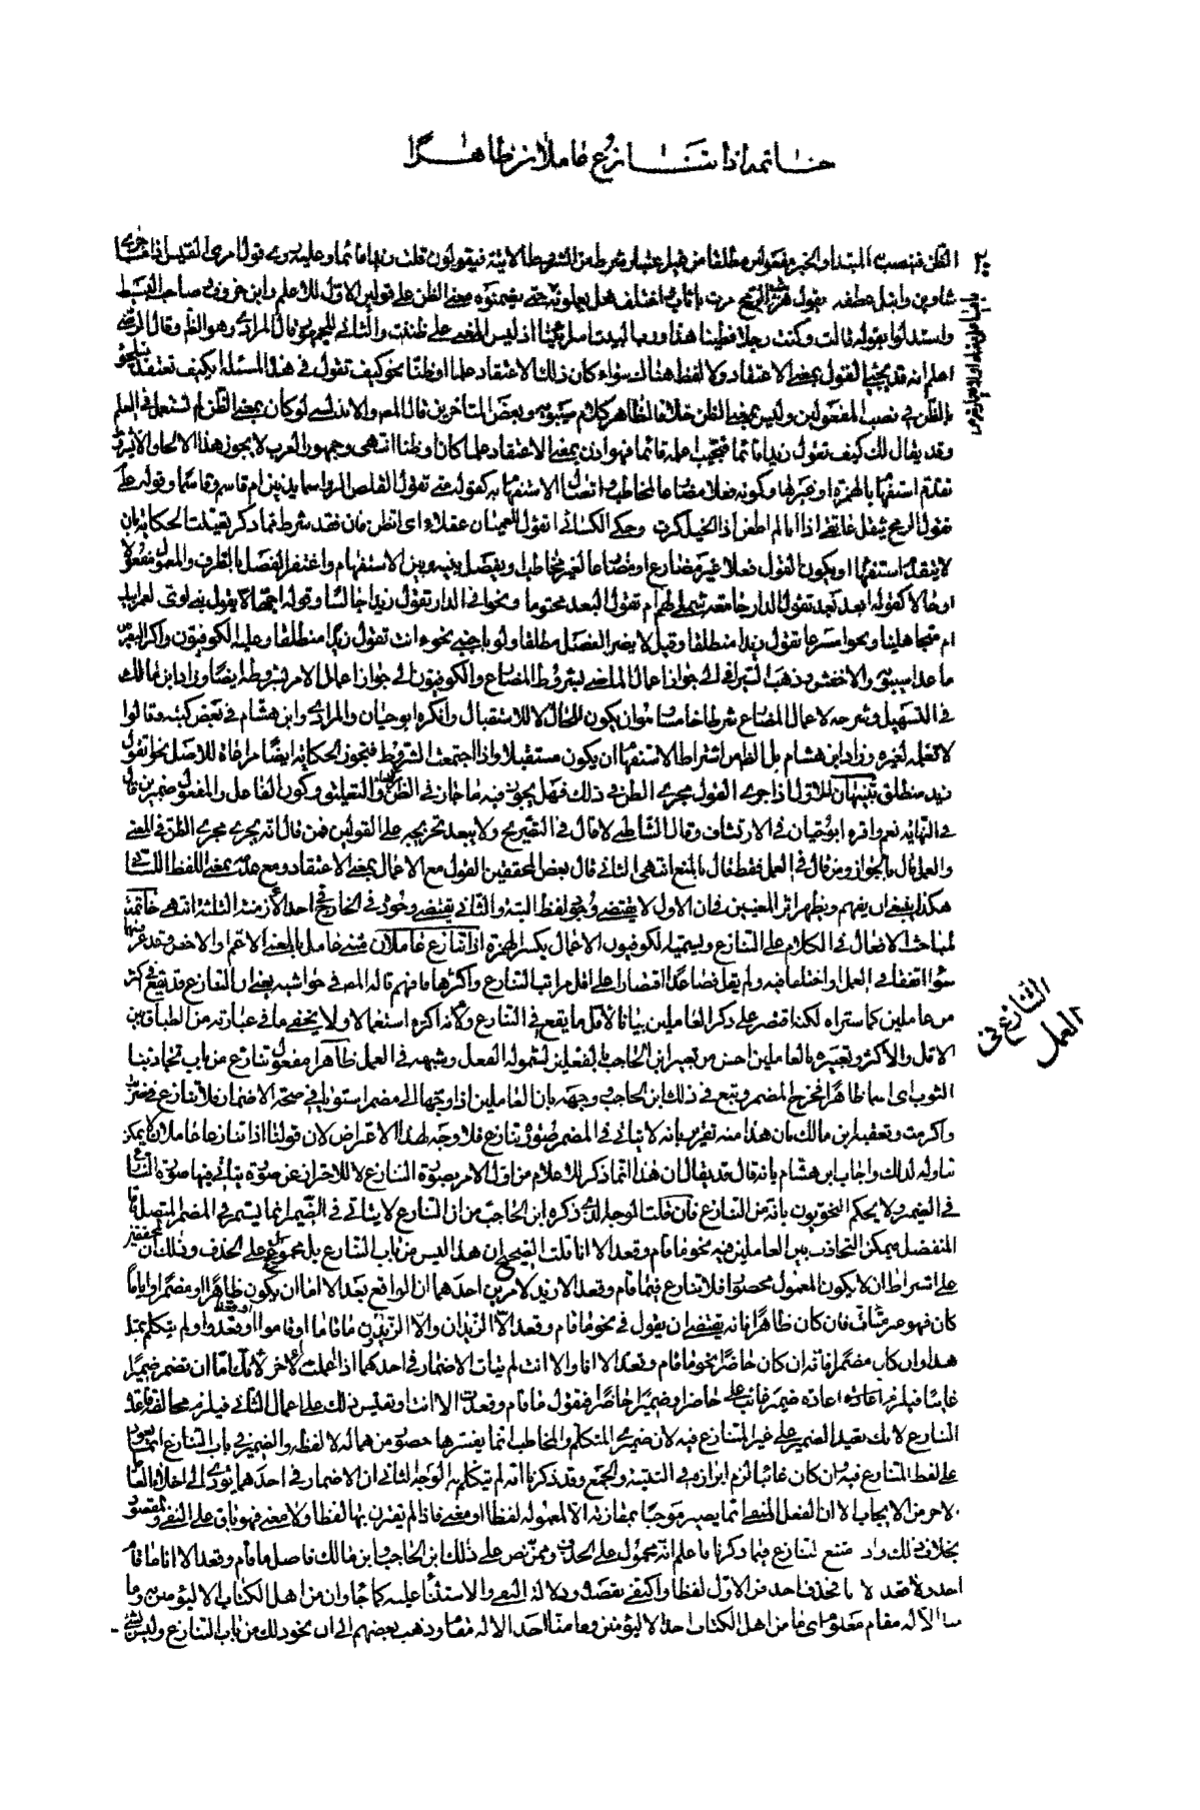 خاتمه اذا تنازع عاملان ظاهرا
الظن فينصب المبتدا والخبر مفعولين مطلقا من غير اعتبار شرط من الشروط الاتية فيقولون قلت زيدا قائما وعليه روى قول امرئ القيس اذا ما جرى
شاوين وابتل عطفه تقول هزيز الريح مرت باثاب اختلف هل يعملونه حتى يضمنوه معنى الظن على قولين الاول للاعلم وابن خروف وصاحب البسيط
واستدلوا بقوله قالت وكنت رجلا فطينا هذا ورب البيت اسرائينا اذ ليس المعنى على ظننت والثاني للجمهور قال المرادي وهو الظ وقال الرضي
اعلم انه قد يجئ القول بمعنى الاعتقاد ولا لفظ هناك سواء كان ذلك الاعتقاد علما او ظنا نحو كيف تقول في هذا المسئلة اي كيف تعتقد فيلحق
بالظن في نصب المفعولين وليس بمعنى الظن خلافا لظاهر كلام سيبويه وبعض المتاخرين قال المص والاندلسي لو كان بمعنى الظن لم تستعمل في العلم
وقد يقال لك كيف تقول زيدا قائما فتجيب اعلمه قائما فهو اذن بمعنى الاعتقاد علما كان او ظنا انتهى وجمهور العرب لا يجوز هذا الالحاق الا بشروط
تقدم استفهام بالهمزة او غيرها وكونه فعلا مضارعا لمخاطب واتصال الاستفهام به كقوله متى تقول القلص الرواسما يدنين ام قاسم وقاسما وقوله على م
تقول الرمح يثقل عاتقي اذا انا لم اطعن اذا الخيل كرت وحكى الكسائي اتقول للعميان عقلا اي اتظن فان فقد شرط مما ذكر تعينت الحكاية بان
لا يتقدم استفهام او يكون القول فعلا غير مضارع او مضارعا لغير مخاطب او يفصل بينه وبين الاستفهام واغتفر الفصل بالظرف والمعمول مفعولا
او حالا كقوله ابعد بعد تقول الدار جامعة شملي بهم ام تقول البعد محتوما ونحو افي الدار تقول زيدا جالسا وقوله اجهالا تقول بني لوى لعمر ابيك
ام متجاهلينا ونحو امسرعا تقول زيدا منطلقا وقيل لا يضر الفصل مطلقا ولو باجنبي نحو اانت تقول زيدا منطلقا وعليه الكوفيون واكثر البصريين
ما عدا سيبويه والاخفش وذهب السيرافي الى جواز اعمال الماضي بشروط المضارع والكوفيون الى جواز اعمال الامر بشروطه ايضا وزاد ابن مالك
في التسهيل وشرحه لاعمال المضارع شرطا خامسا هو ان يكون للحال لا للاستقبال وانكره ابو حيان والمرادي وابن هشام في بعض كتبه وقالوا
لا نعلمه لغيره وزاد ابن هشام بل الظهر اشتراط الاستفهام ان يكون مستقبلا واذا اجتمعت الشروط فتجوز الحكاية ايضا مراعاة للاصل نحو اتقول
زيد منطلق تنبيهان الاول اذا جرى القول مجرى الظن في ذلك فهل يجوز فيه ما جاز في الظن من الالغاء والتعليق وكون الفاعل والمفعول ضميرين قال
في النهاية نعم واقره ابو حيان في الارتشاف وقال الشاطبي لا قال في التصريح ولا يبعد تخريجه على القولين فمن قال انه يجرى مجرى الظن في المعنى
والعمل قال بالجواز ومن قال في العمل فقط قال بالمنع انتهى الثاني قال بعض المحققين القول مع الاعمال بمعنى الاعتقاد ومع عدمه بمعنى اللفظ اللساني
هكذا ينبغي ان يفهم ويظهر اثر المعنيين فان الاول لا يقتضى وجود لفظ البتة والثاني يقتضى وجوده في الخارج في احد الازمنة الثلثة انتهى خاتمة
لمباحث الافعال في الكلام على التنازع ويسميه الكوفيون الاعمال بكسر الهمزة اذا تنازع عاملان مثنى عامل بالمعنى الاعم والاخص وقد عرفتهما
سواء اتفقا في العمل او اختلفا فيه ولم يقل فصاعدا اقتصارا على اقل مراتب التنازع واكثرها فافهم قاله المص في حواشيه يعني ان التنازع قد يقع في اكثر
من عاملين كما ستراه لكنه اقتصر على ذكر العاملين بيانا لاقل ما يقع في التنازع ولانه اكثره استعمالا ولا يخفى ما في عبارته من الطباق بين
الاقل والاكثر وتعبيره بالعاملين احسن من تعبير ابن الحاجب بالفعلين لشموله الفعل وشبهه في العمل ظاهرا مفعول تنازع من باب تجاذبنا
الثوب اي اسما ظاهرا فخرج المضمر وتبع في ذلك ابن الحاجب ووجهه بان العاملين اذا وجها الى مضمر استويا في صحة الاضمار فلا تنازع نحو ضربت
واكرمت وتعقبه ابن مالك بان هذا منه تقرير بانه لا يتاتى في المضمر صورة تنازع فلا وجه لهذا الاعتراض لان قولنا اذا تنازعا عاملان لا يمكن
تناوله لذلك واجاب ابن هشام بانه قال قد يقال ان هذا انما ذكر للاعلام من اول الامر بصورة التنازع لا للاحتراز عن صورة يتاتى فيها صورة التنازع
في الضمير ولا يحكم النحويون بانه من التنازع فان قلت الوجه الذي ذكره ابن الحاجب من ان التنازع لا يتاتى في الضمير انما يستمر في المضمر المتصل فاما
المنفصل فيمكن التجاذب بين العاملين فيه نحو ما قام وقعد الا انا قلت الصحيح ان هذا ليس من باب التنازع بل محمول على الحذف وذلك ان المحققين
على اشتراط ان لا يكون المعمول محصورا فلا تنازع فيما قام وقعد الا زيد لامرين احدهما ان الواقع بعد الا اما ان يكون ظاهرا او مضمرا واياما
كان فهو عير متات فان كان ظاهرا فانه يقتضى ان يقول في نحو ما قام وقعد الا الزيدان والا الزيدون ما قاما او قاموا او قعدا او قعدوا ولم يتكلم بمثل
هذا وان كان مضمرا فانه ان كان حاضرا نحو ما قام وقعد الا انا والا انت لم يتات الاضمار في احدهما اذا اعملت الاخر لانك اما ان تضمر ضميرا
غائبا فيلزم اعادة ضمير غائب على حاضر او ضميرا حاضرا فتقول ما قام وقعدت الا انت او تقيس ذلك على اعمال الثاني فيلزم مخالفة قاعدة
التنازع لانك تعيد الضمير على غير المتنازع فيه لان ضميري المتكلم والمخاطب انما يفسرها حضور من هما له لا لفظه والضمير في باب التنازع انما يعود
على لفظ المتنازع فيه وان كان غائبا لزم ابرازه في التثنية والجمع وقد ذكرنا انه لم يتكلم به الوجه الثاني ان الاضمار في احدهما يؤدي الى اخلاء العامل
الاخر من الايجاب لان الفعل المنفي انما يصير موجبا بمقارنة الا لمعموله لفظا او معنى فاذا لم يقترن بها لفظا ولا معنى فهو باق على النفي والمقصود
بخلاف ذلك واذ امتنع التنازع فيما ذكرنا فاعلم انه محمول على الحذف وممن نص على ذلك ابن الحاجب وابن مالك فاصل ما قام وقعد الا انا ما قام
احد وما قعد الا انا فحذف احد من الاول لفظا واكتفى بقصده ودلالة النفى والاستثناء عليه كما جاء وان من اهل الكتاب الا ليؤمنن به وما
منا الا له مقام معلوم اي ما من اهل الكتاب احد الا ليؤمنن وما منا احد الا له مقام وذهب بعضهم الى ان نحو ذلك من باب التنازع وليس بشئ
التنازع في
العمل